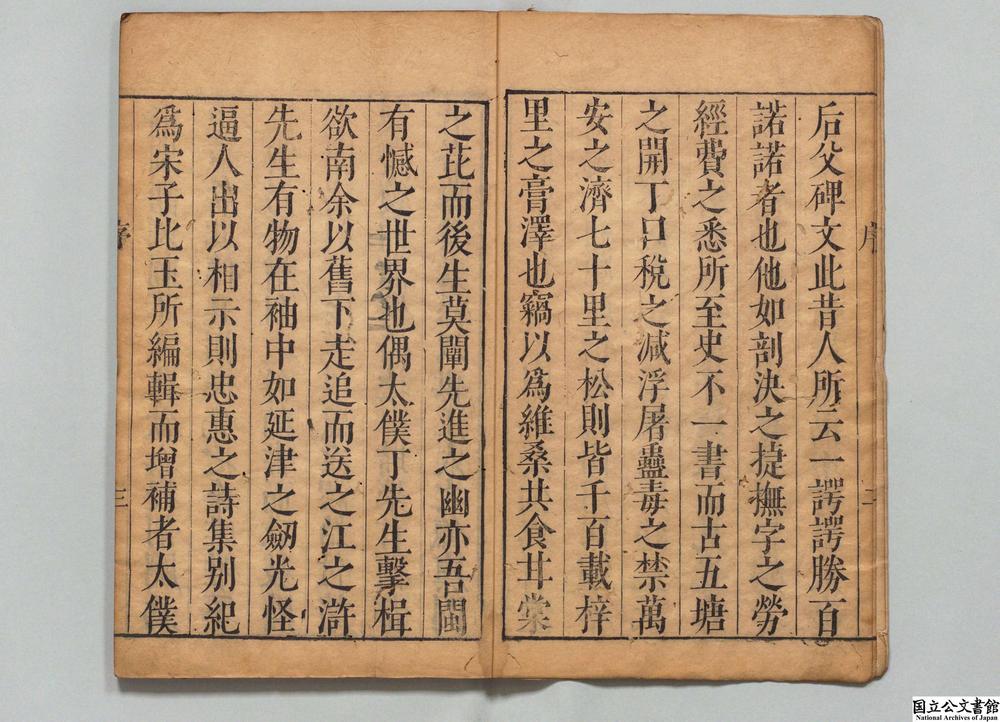 后父碑文此昔人所云一諤諤勝百
諾諾者也他如剖決之捷撫字之勞
經費之悉所至史不一書而古五塘
之開丁口稅之減浮屠蠱毒之禁萬
安之濟七十里之松則皆千百載梓
里之膏澤也竊以爲維桑共食甘棠
之芘而後生莫闡先進之幽亦吾閩
有憾之世界也偶太僕丁先生擊楫
欲南余以舊下走追而送之江之滸
先生有物在袖中如延津之劒光怪
逼人出以相示則忠惠之詩集別紀
爲宋子比玉所編輯而增補者太僕
序
二
序
三
国立公文書館
National Archives of Japan